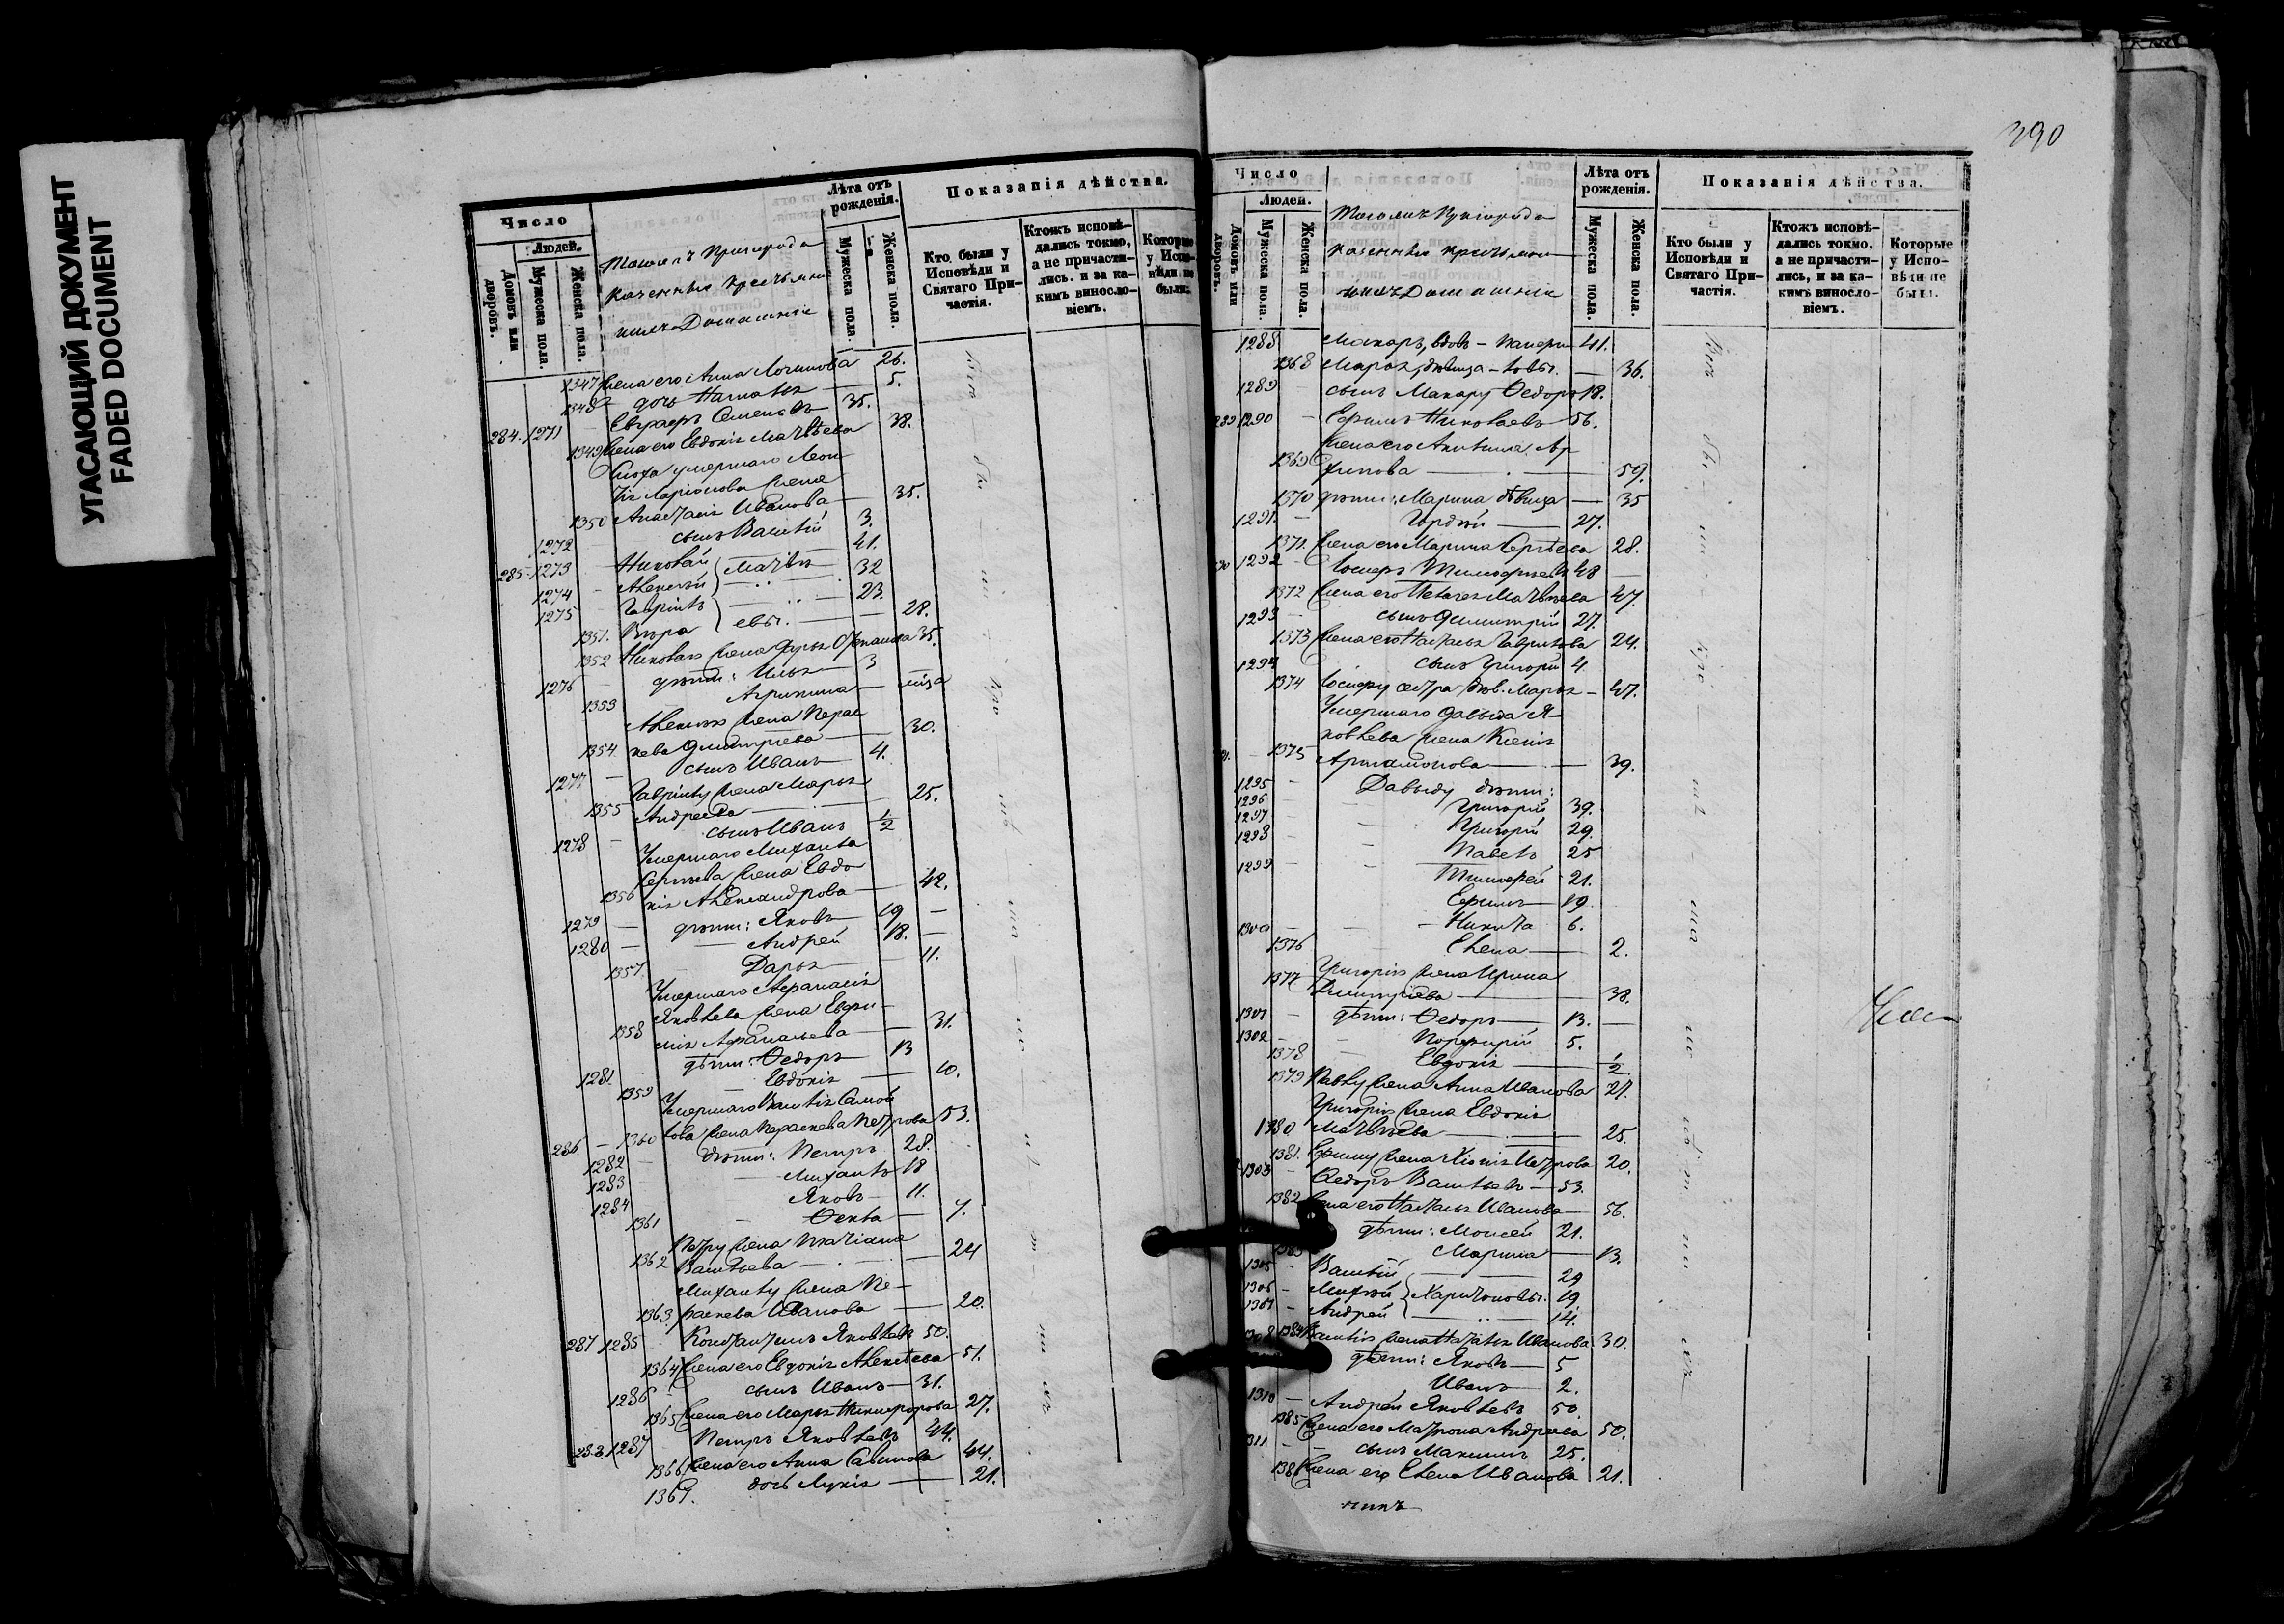 УГАСАЮЩИЙ ДОКУМЕНТ
FADED DOCUMENT
Число
Людей.
Домовъ или дворовъ.
Мужеска пола
Женска пола.
Пригорода
казенные крестьяне
и ихъ Домашніе
Лѣта отъ рожденія.
Мужеска пола.
Женска пола.
Показанія дѣйства.
Кто были у Исповѣди и Святаго Причастія.
Ктожъ исповѣдались токмо, а не причастились, и за какимъ винословіемъ.
Которые у Исповѣди не были.
1347 Жена его Анна Логинова 26.
1348 дочь Наталья 5.
284. 1271 Евграфъ Семеновъ 35.
1349 Жена его Евдокія Матвѣева 38.
Сноха умершаго Леон
тія Ларіонова жена
1350 Анастасія Иванова 35.
1272 сынъ Василій 3.
285 1273 Николай Матвѣ 41.
1274 Алексѣй 32
1275 Гаврилъ 23.
1351. Вѣра евы. 28.
1352 Николаю жена Дарья Степанова 35.
1276 дѣти: Илья 3
1353 Агрипина
Алексѣю жена Парас
1354 кева Дмитріева 30.
1277 сынъ Иванъ 4.
Гаврилу жена Марья
1355 Андреева 25.
1278 сынъ Иванъ 1/2
Умершаго Михаила
Сергѣева жена Евдо
1356 кія Александрова 42.
1279 дѣти: Яковъ 19
1280 Андрей 18.
1357. Дарья 11.
Умершаго Афанасія
Яковлева жена Евфи
1358 мія Афанасьева 31.
1281. дѣти: Ѳедоръ 13
1359 Евдокія 10.
Умершаго Василія Самой
286 1360 лова жена Параскева Петрова 53.
1282 дѣти: Петръ 28.
1283 Михаилъ 18
1284 Яковъ 11.
1361 Ѳекла 7.
Петру жена Татіана
1362 Васильева 24
Михаилу жена Па
1363. раскева Иванова 20.
287 1285 Константинъ Яковлевъ 50.
1364 Жена его Евдокія Алексѣева 51.
1286 сынъ Иванъ 31.
1365 Жена его Марья Никифорова 27.
288. 1287 Петръ Яковлевъ 44.
1366 Жена его Анна Савинова 44.
1367. дочь Лукія 21.
390
Число
Людей.
Домовъ или дворовъ.
Мужеска пола.
Женска пола.
Пригорода
казенные крестьяне
и ихъ Домашніе
Лѣта отъ рожденія.
Мужеска пола.
Женска пола.
Показанія дѣйства.
Кто были у Исповѣди и Святаго Причастія.
Ктожъ исповѣдались токмо. а не причастились, и за какимъ винословіемъ.
Которые у Исповѣди не были.
1288 Макаръ, вдовъ 41.
1368 Марья, дѣвица 36.
1289 сынъ Макару Ѳедоръ 18.
289 1290 Ефимъ Николаевъ 56.
Жена его Акилина Ар
1369 хипова 59.
1370 дѣти: Марина дѣвица 35
1291. Гордѣй 27.
1371. Жена его Марина Сергѣева 28.
1292 Іосифъ Тимофѣевъ 48
1372 Жена его Пелагея Матвѣева 47.
1293 сынъ Димитрій 27.
1373 Жена его Наталья Гаврилова 24.
1294 сынъ Григорій 4.
1374 Іосифу сестра дѣв. Марья 47.
Умершаго Давыда Я
ковлева жена Ксенія
1375 Артамонова 39.
1295 Давыду дѣти:
1296 Григорій 39.
1297 Григорій 29.
1298 Павелъ 25
1299 Тимофей 21.
Ефимъ 19.
1300 Никита 6.
1376 Елена 2.
1377 Григорія жена Ирина
Димитріева 38.
1301 дѣти: Ѳедоръ 13.
1302 Порфирій 5.
1378 Евдокія 1/2
1379 Павлу жена Анна Иванова 27.
Григорія жена Евдокія
1380 Матвѣева 25.
1381. Ефиму жена Хіонія Петрова 20.
1303 Ѳедоръ Васильевъ 53.
1382 Жена его Наталья Иванова 56.
дѣти: Моисей 21.
1383 Марина 13.
1305 Василій 29
1306 Михѣй Харитоновы. 19
1307 Андрей 14.
1308 1384 Василія жена Наталья Иванова 30.
дѣти: Яковъ 5
Иванъ 2.
1310 Андрей Яковлевъ 50
1385 Жена его Матрона Андреева 50.
311 сынъ Максимъ 25.
1386 Жена его Елена Иванова 21.